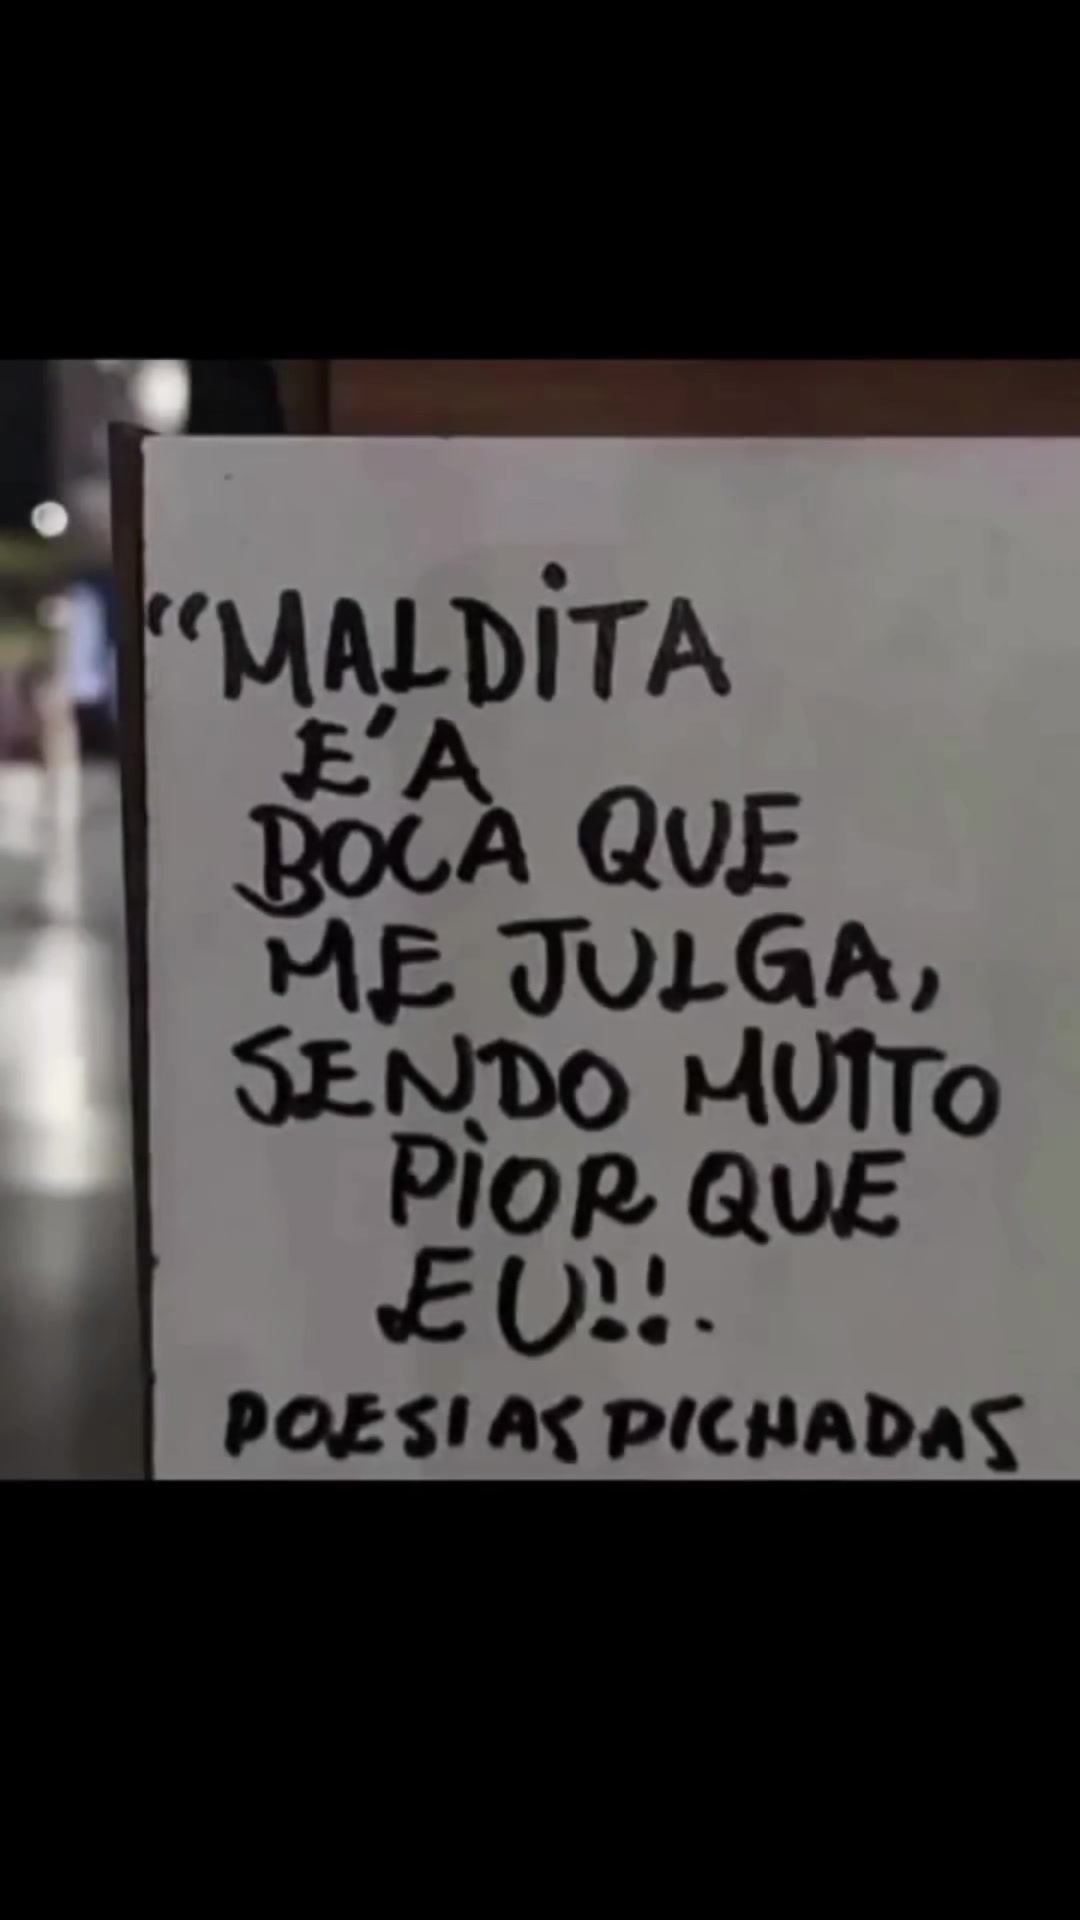 “MALDITA
E'A
BOCA QUE
ME JULGA,
SENDO MUITO
PIOR QUE
EU!!.
POESIAS PICHADAS